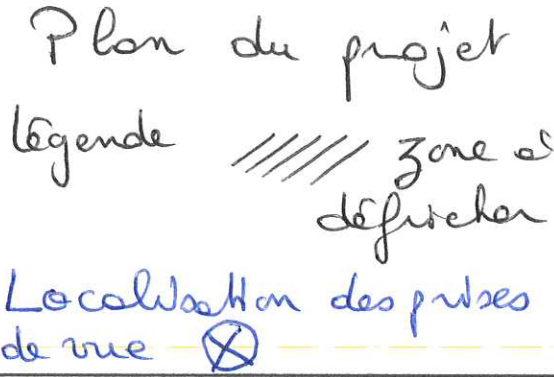 Plan du projet
légende zone à
défricher
Localisation des prises
de vue